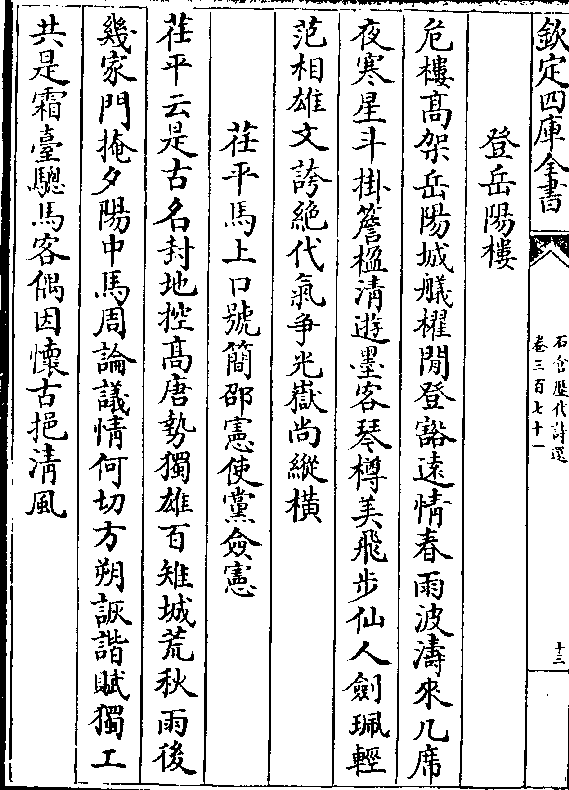 欽定四庫全書
石倉歷代詩選
卷三百七十一
十三
登岳陽樓
危樓高架岳陽城艤櫂閒登豁遠情春雨波濤來几席
夜寒星斗掛簷楹清遊墨客琴樽美飛步仙人劍珮輕
范相雄文誇絶代氣爭光嶽尚縱橫
茌平馬上口號簡邵憲使黨僉憲
茌平云是古名封地控高唐勢獨雄百雉城荒秋雨後
幾家門掩夕陽中馬周論議情何切方朔詼諧賦獨工
共是霜臺驄馬客偶因懷古挹清風